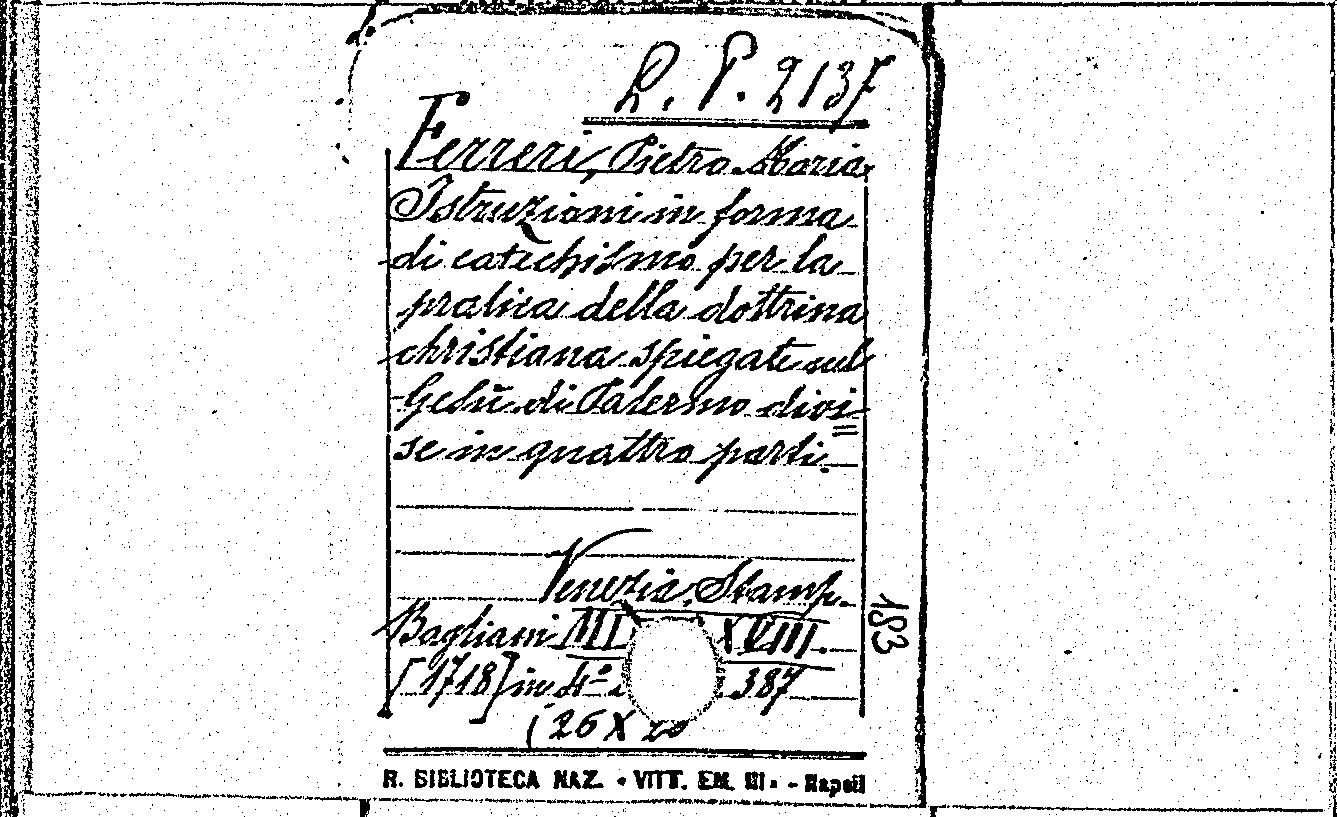 L. P. 2137
Ferreri, Pietro Maria
Istruzioni in forma
di catechismo per la
pratica della dottrina
christiana spiegate nel
Gesù di Palermo divi=
se in quattro parti.
Venezia. Stamp.
Baglioni XVIII.
[1718] in 4° 387
(26 X 20
183
R. BIBLIOTECA NAZ. - VITT. EM. III. - Napoli